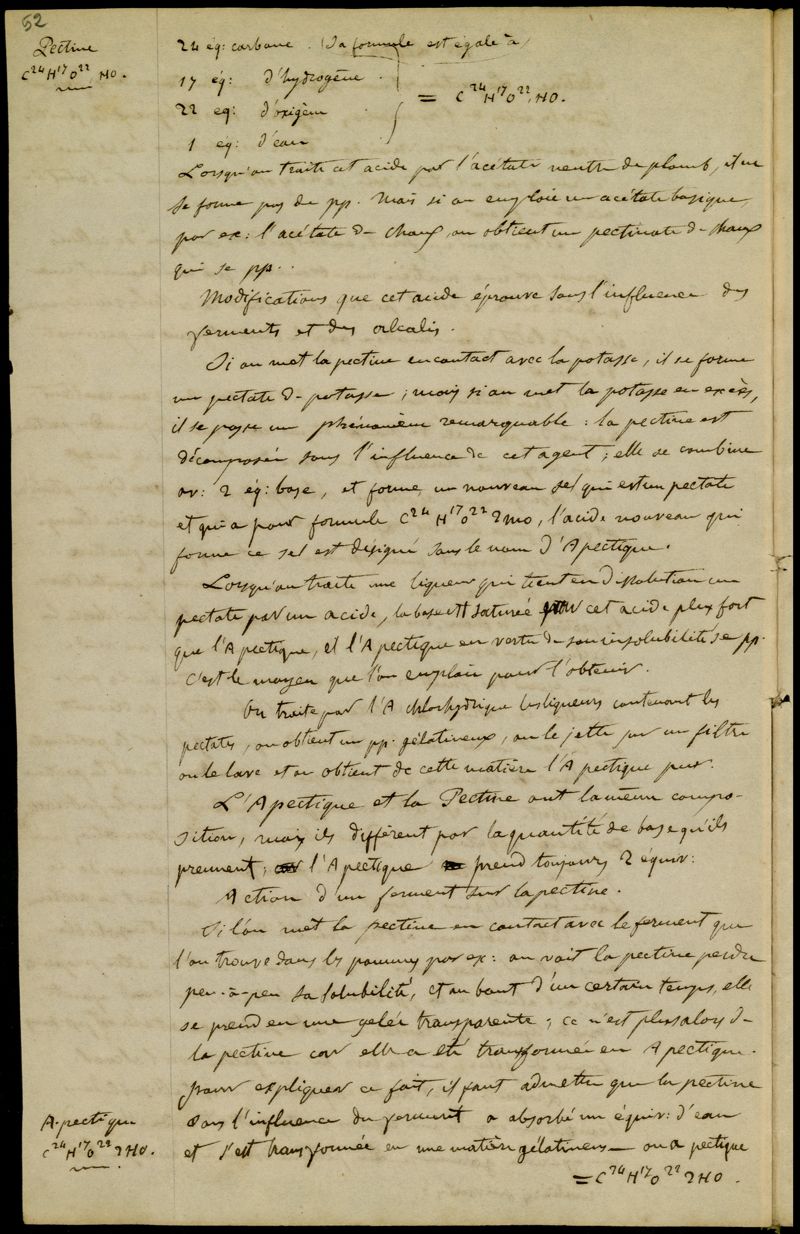 52
Pectine
C²⁴H¹⁷O²², HO.
24 éq: carbone. (Sa formule est égale à)
17 éq: d'hydrogène.
= C²⁴H¹⁷O²², HO.
22 eq: d'oxigène
1 éq: d'eau
Lorsqu'on traite cet acide par l'acétate neutre de plomb, il ne
se forme pas de pp. Mais si on emploie un acétate basique,
par ex: l'acétate de chaux, on obtient un pectinate de chaux
qui se pp..
Modifications que cet acide éprouve sous l'influence des
ferments et des alcalis.
Si on met la pectine en contact avec la potasse, il se forme
un pectate de potasse; mais si on met la potasse en excès,
il se passe un phénomène remarquable: la pectine est
décomposée sous l'influence de cet agent; elle se combine
av: 2 éq: base, et forme un nouveau sel qui est un pectate
et qui a pour formule C²⁴H¹⁷O²² 2mo, l'acide nouveau qui
forme ce sel est désigné sous le nom d'A pectique.
Lorsqu'on traite une liqueur qui tient en dissolution un
pectate par un acide, la base est saturée par cet acide plus fort
que l'A pectique, et l'A pectique en vertu de son insolubilité se pp.
c'est le moyen que l'on emploie pour l'obtenir.
On traite par l'A chlorhydrique les liqueurs contenant les
pectates, on obtient un pp. gélatineux, on le jette sur un filtre
on le lave et on obtient de cette matière l'A pectique pur.
L'A pectique et la Pectine ont la même compo-
sition, mais ils diffèrent par la quantité de base qu'ils
prennent; l'A pectique prend toujours 2 équiv:
Action d'un ferment sur la pectine.
Si l'on met la pectine en contact avec le ferment que
l'on trouve dans les pommes par ex: on voit la pectine perdre
peu-à-peu sa solubilité, et au bout d'un certain temps, elle
se prend en une gelée transparente; ce n'est plus alors de
la pectine car elle a été transformée en A pectique.
Pour expliquer ce fait, il faut admettre que la pectine
sous l'influence du ferment a absorbé un équiv: d'eau
et s'est transformée en une matière gélatineuse ou a pectique
= C²⁴H¹⁷O²² 2HO.
A. pectique
C²⁴H¹⁷O²² 2HO.